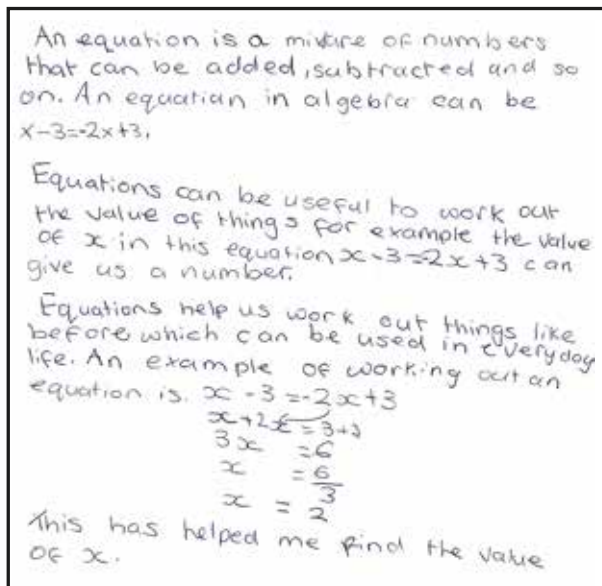 An equation is a mixture of numbers
that can be added, subtracted and so
on. An equation in algebra can be
x-3=-2x+3.
Equations can be useful to work out
the value of things for example the value
of x in this equation x-3=-2x+3 can
give us a number.
Equations help us work out things like
before which can be used in everyday
life. An example of working out an
equation is. x - 3 = -2x+3
x+2x = 3+3
3x = 6
x = 6
3
x = 2
This has helped me find the value
of x.